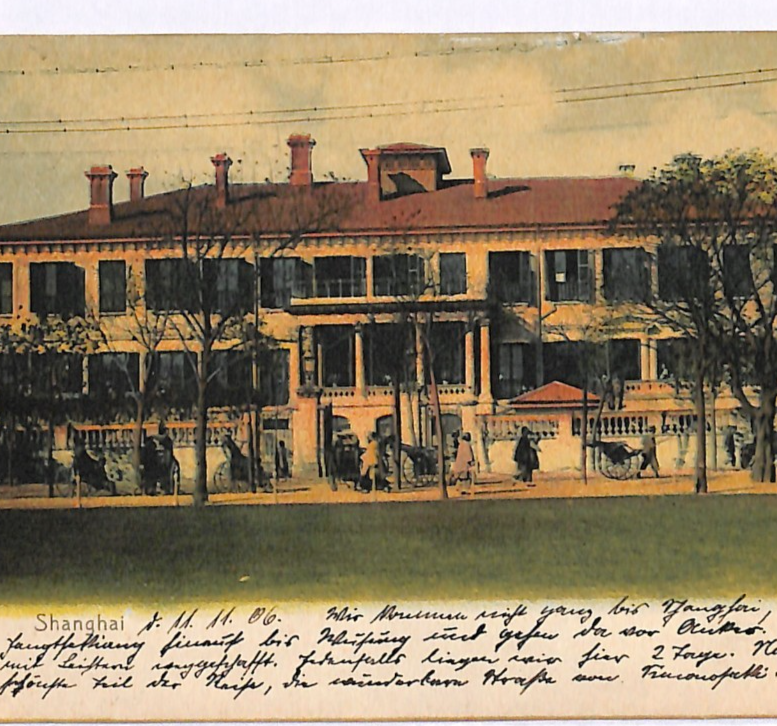 Shanghai d. 11. 11. 06. Wir kommen nicht ganz bis Shanghai,
hinauf bis Wusung und gehen da vor Anker.
mit Leichtern weggeschafft. Jedenfalls liegen wir hier 2 Tage.
schönste Teil der Reise, die wunderbare Straße von Simonoseki